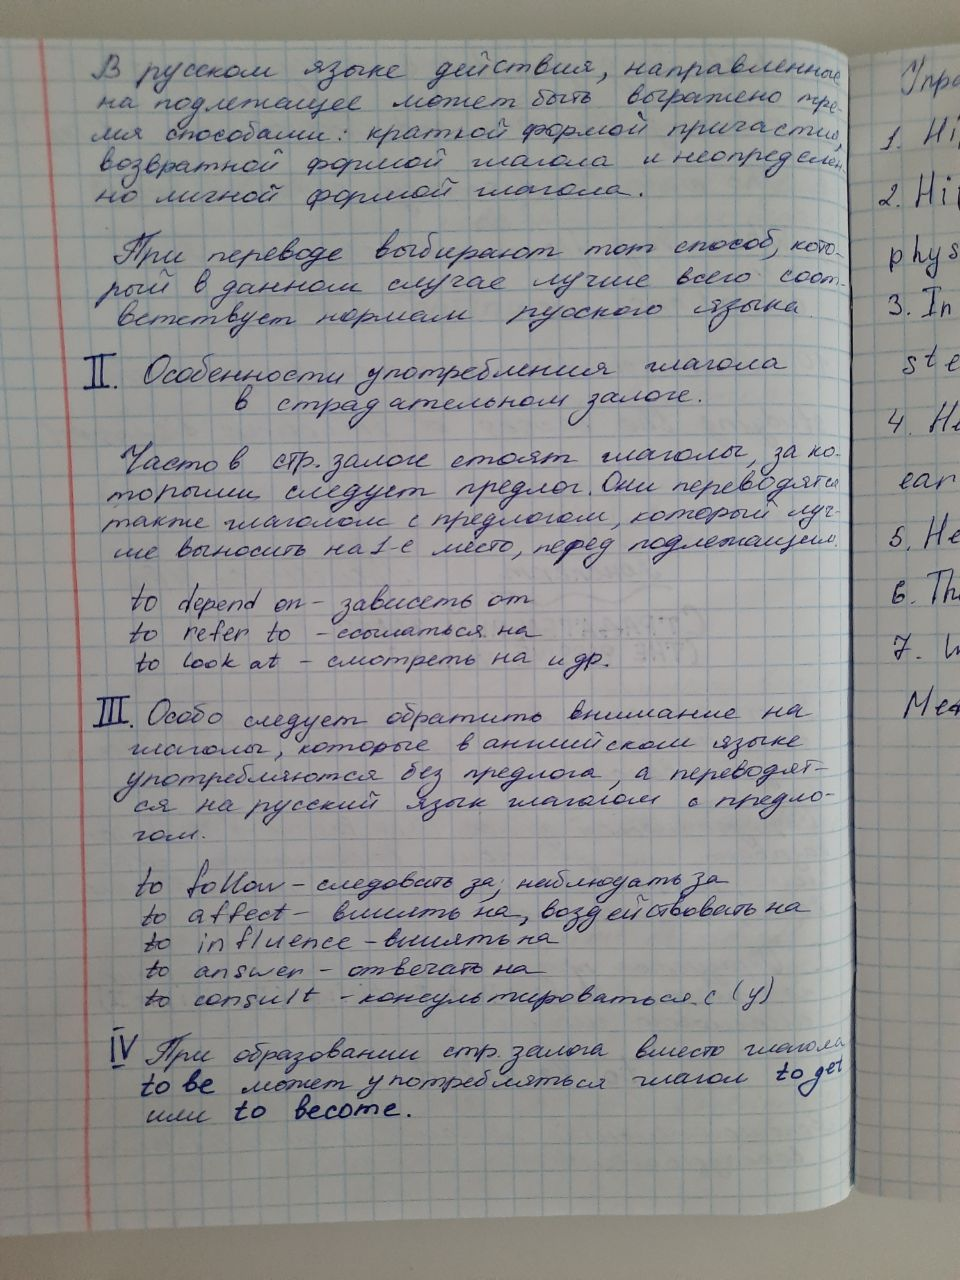 В русском языке действия, направленные
на подлежащее может быть выражено тре-
мя способами: краткой формой причастия,
возвратной формой глагола и неопределен-
но личной формой глагола.
При переводе выбирают тот способ, кото-
рый в данном случае лучше всего соот-
ветствует нормам русского языка.
II. Особенности употребления глагола
в страдательном залоге.
Часто в стр. залоге стоят глаголы, за ко-
торыми следует предлог. Они переводятся
также глаголом с предлогом, который луч-
ше выносить на 1-е место, перед подлежащим.
to depend on - зависеть от
to refer to - ссылаться на
to look at - смотреть на и др.
III. Особо следует обратить внимание на
глаголы, которые в английском языке
употребляются без предлога, а переводят-
ся на русский язык глаголом с предло-
гом.
to follow - следовать за, наблюдать за
to affect - влиять на, воздействовать на
to influence - влиять на
to answer - отвечать на
to consult - консультироваться с (у)
IV При образовании стр. залога вместо глагола
to be может употребляться глагол to get
или to become.
Упра
1. Hi
2. Hi
phys
3. In
ste
4. He
ear
5. He
6. Th
7.